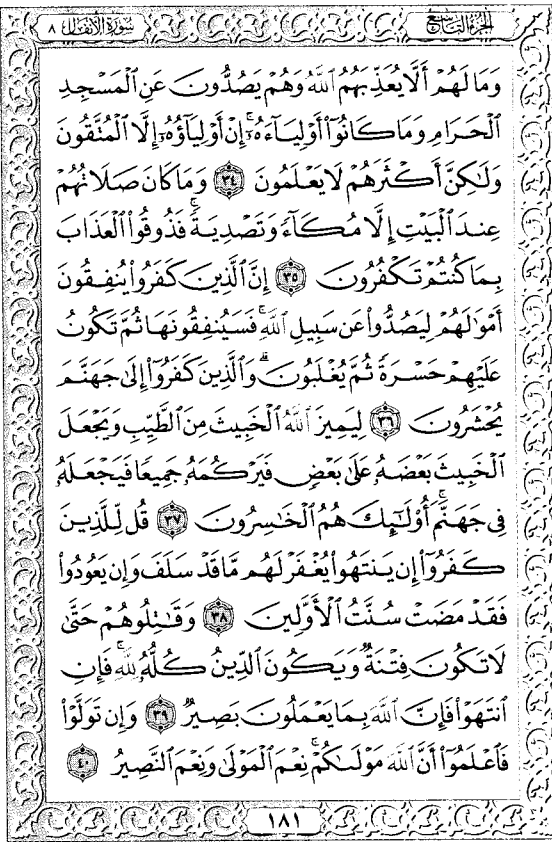 الجزء التاسع
سورة الأنفال ٨
وَمَا لَهُمْ أَلَّا يُعَذِّبَهُمُ ٱللَّهُ وَهُمْ يَصُدُّونَ عَنِ ٱلْمَسْجِدِ
ٱلْحَرَامِ وَمَا كَانُوٓا۟ أَوْلِيَآءَهُۥٓ ۚ إِنْ أَوْلِيَآؤُهُۥٓ إِلَّا ٱلْمُتَّقُونَ
وَلَـٰكِنَّ أَكْثَرَهُمْ لَا يَعْلَمُونَ ٣٤ وَمَا كَانَ صَلَاتُهُمْ
عِندَ ٱلْبَيْتِ إِلَّا مُكَآءً وَتَصْدِيَةً ۚ فَذُوقُوا۟ ٱلْعَذَابَ
بِمَا كُنتُمْ تَكْفُرُونَ ٣٥ إِنَّ ٱلَّذِينَ كَفَرُوا۟ يُنفِقُونَ
أَمْوَٰلَهُمْ لِيَصُدُّوا۟ عَن سَبِيلِ ٱللَّهِ ۚ فَسَيُنفِقُونَهَا ثُمَّ تَكُونُ
عَلَيْهِمْ حَسْرَةً ثُمَّ يُغْلَبُونَ ۗ وَٱلَّذِينَ كَفَرُوٓا۟ إِلَىٰ جَهَنَّمَ
يُحْشَرُونَ ٣٦ لِيَمِيزَ ٱللَّهُ ٱلْخَبِيثَ مِنَ ٱلطَّيِّبِ وَيَجْعَلَ
ٱلْخَبِيثَ بَعْضَهُۥ عَلَىٰ بَعْضٍ فَيَرْكُمَهُۥ جَمِيعًا فَيَجْعَلَهُۥ
فِى جَهَنَّمَ ۚ أُو۟لَـٰٓئِكَ هُمُ ٱلْخَـٰسِرُونَ ٣٧ قُل لِّلَّذِينَ
كَفَرُوٓا۟ إِن يَنتَهُوا۟ يُغْفَرْ لَهُم مَّا قَدْ سَلَفَ وَإِن يَعُودُوا۟
فَقَدْ مَضَتْ سُنَّتُ ٱلْأَوَّلِينَ ٣٨ وَقَـٰتِلُوهُمْ حَتَّىٰ
لَا تَكُونَ فِتْنَةٌ وَيَكُونَ ٱلدِّينُ كُلُّهُۥ لِلَّهِ ۚ فَإِنِ
ٱنتَهَوْا۟ فَإِنَّ ٱللَّهَ بِمَا يَعْمَلُونَ بَصِيرٌ ٣٩ وَإِن تَوَلَّوْا۟
فَٱعْلَمُوٓا۟ أَنَّ ٱللَّهَ مَوْلَىٰكُمْ ۚ نِعْمَ ٱلْمَوْلَىٰ وَنِعْمَ ٱلنَّصِيرُ ٤٠
١٨١